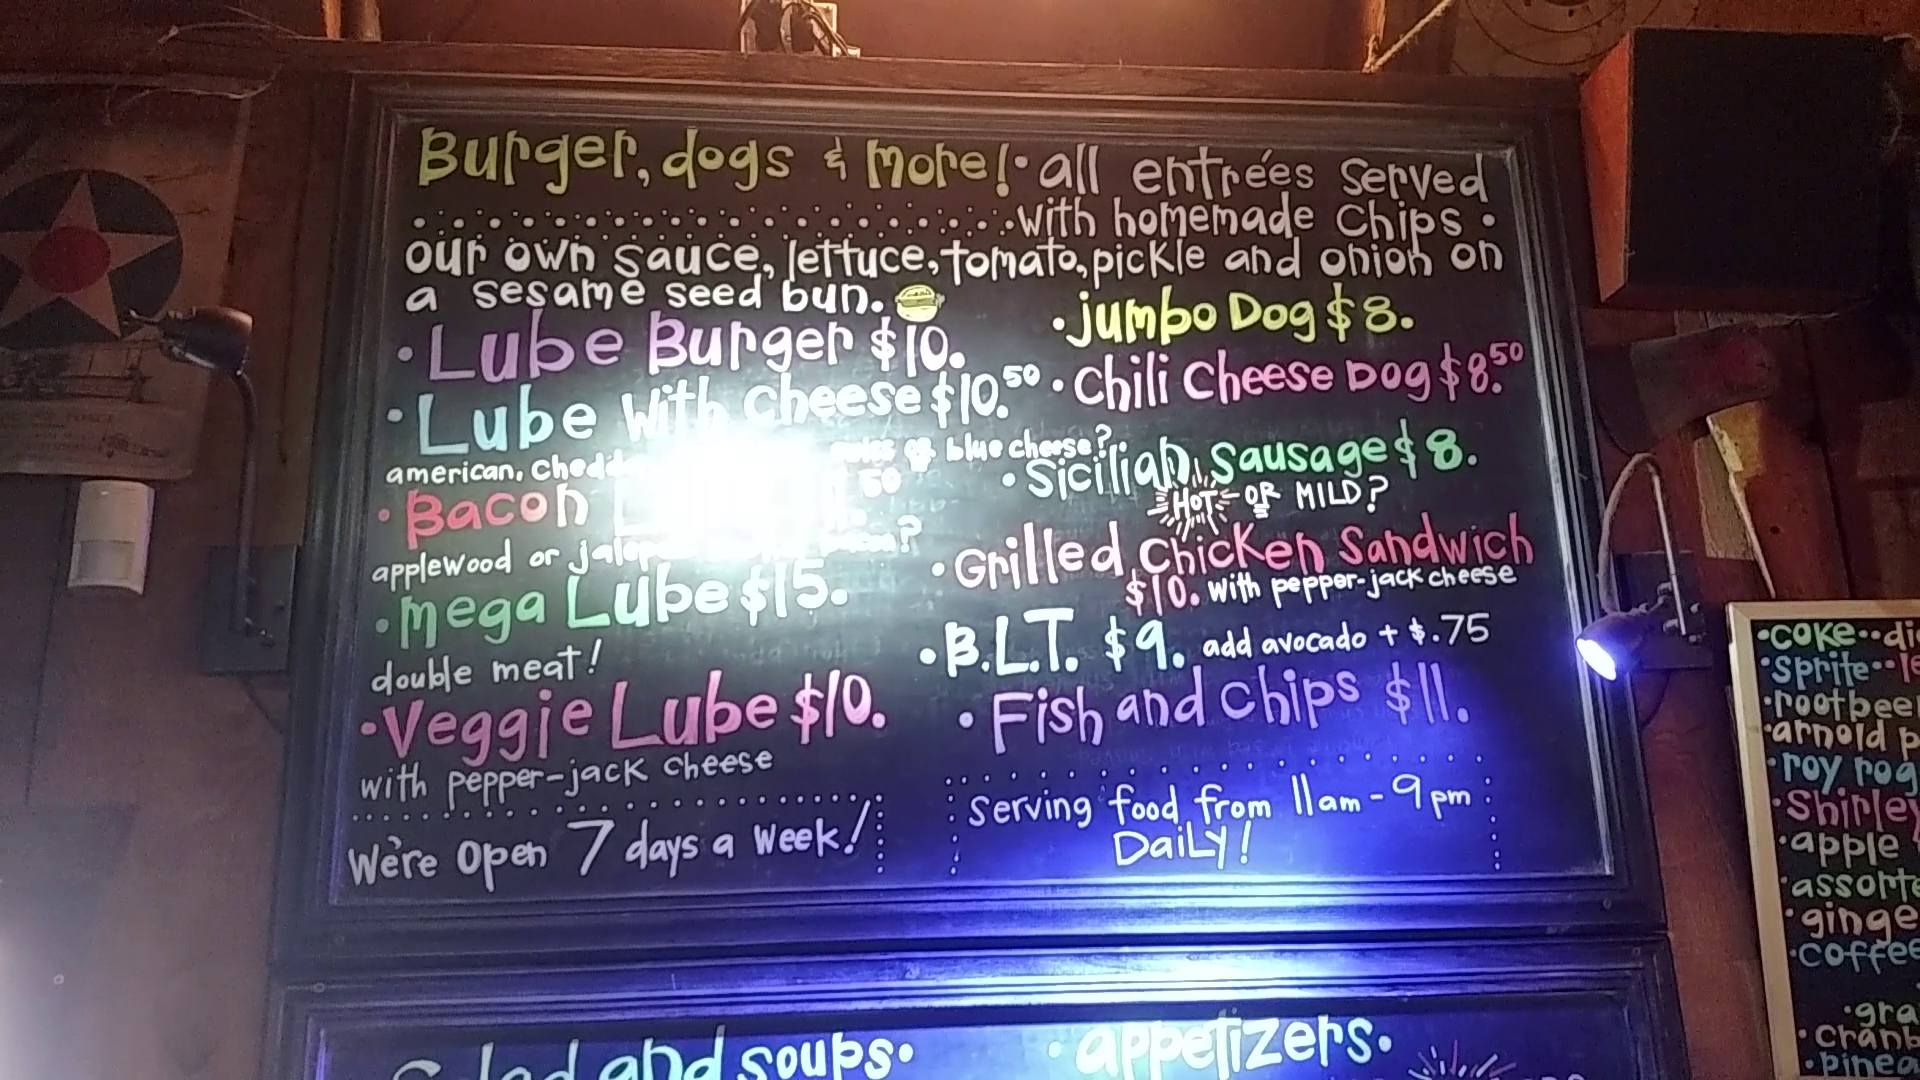 Burger, dogs & More! • all entrées served
with homemade chips •
our own sauce, lettuce, tomato, pickle and onion on
a sesame seed bun.
• Lube Burger $10.
• Lube with cheese $10.50
american, chedd blue cheese?
• Bacon L 50
applewood or jalap bacon?
• mega Lube $15.
double meat!
• Veggie Lube $10.
with pepper-jack cheese
We're open 7 days a week!
• jumbo Dog $8.
• chili cheese Dog $8.50
• Sicilian sausage $8.
HOT - OR MILD?
• Grilled chicken Sandwich
$10. with pepper-jack cheese
• B.L.T. $9. add avocado + $.75
• Fish and chips $11.
Serving food from 11am - 9pm
DaiLY!
and soups •
• appetizers •
• coke •• di
• Sprite •• le
• rootbeer
• arnold p
• roy rog
• Shirley
• apple
• assorte
• ginge
• coffee
• gra
• Cranb
• pinea